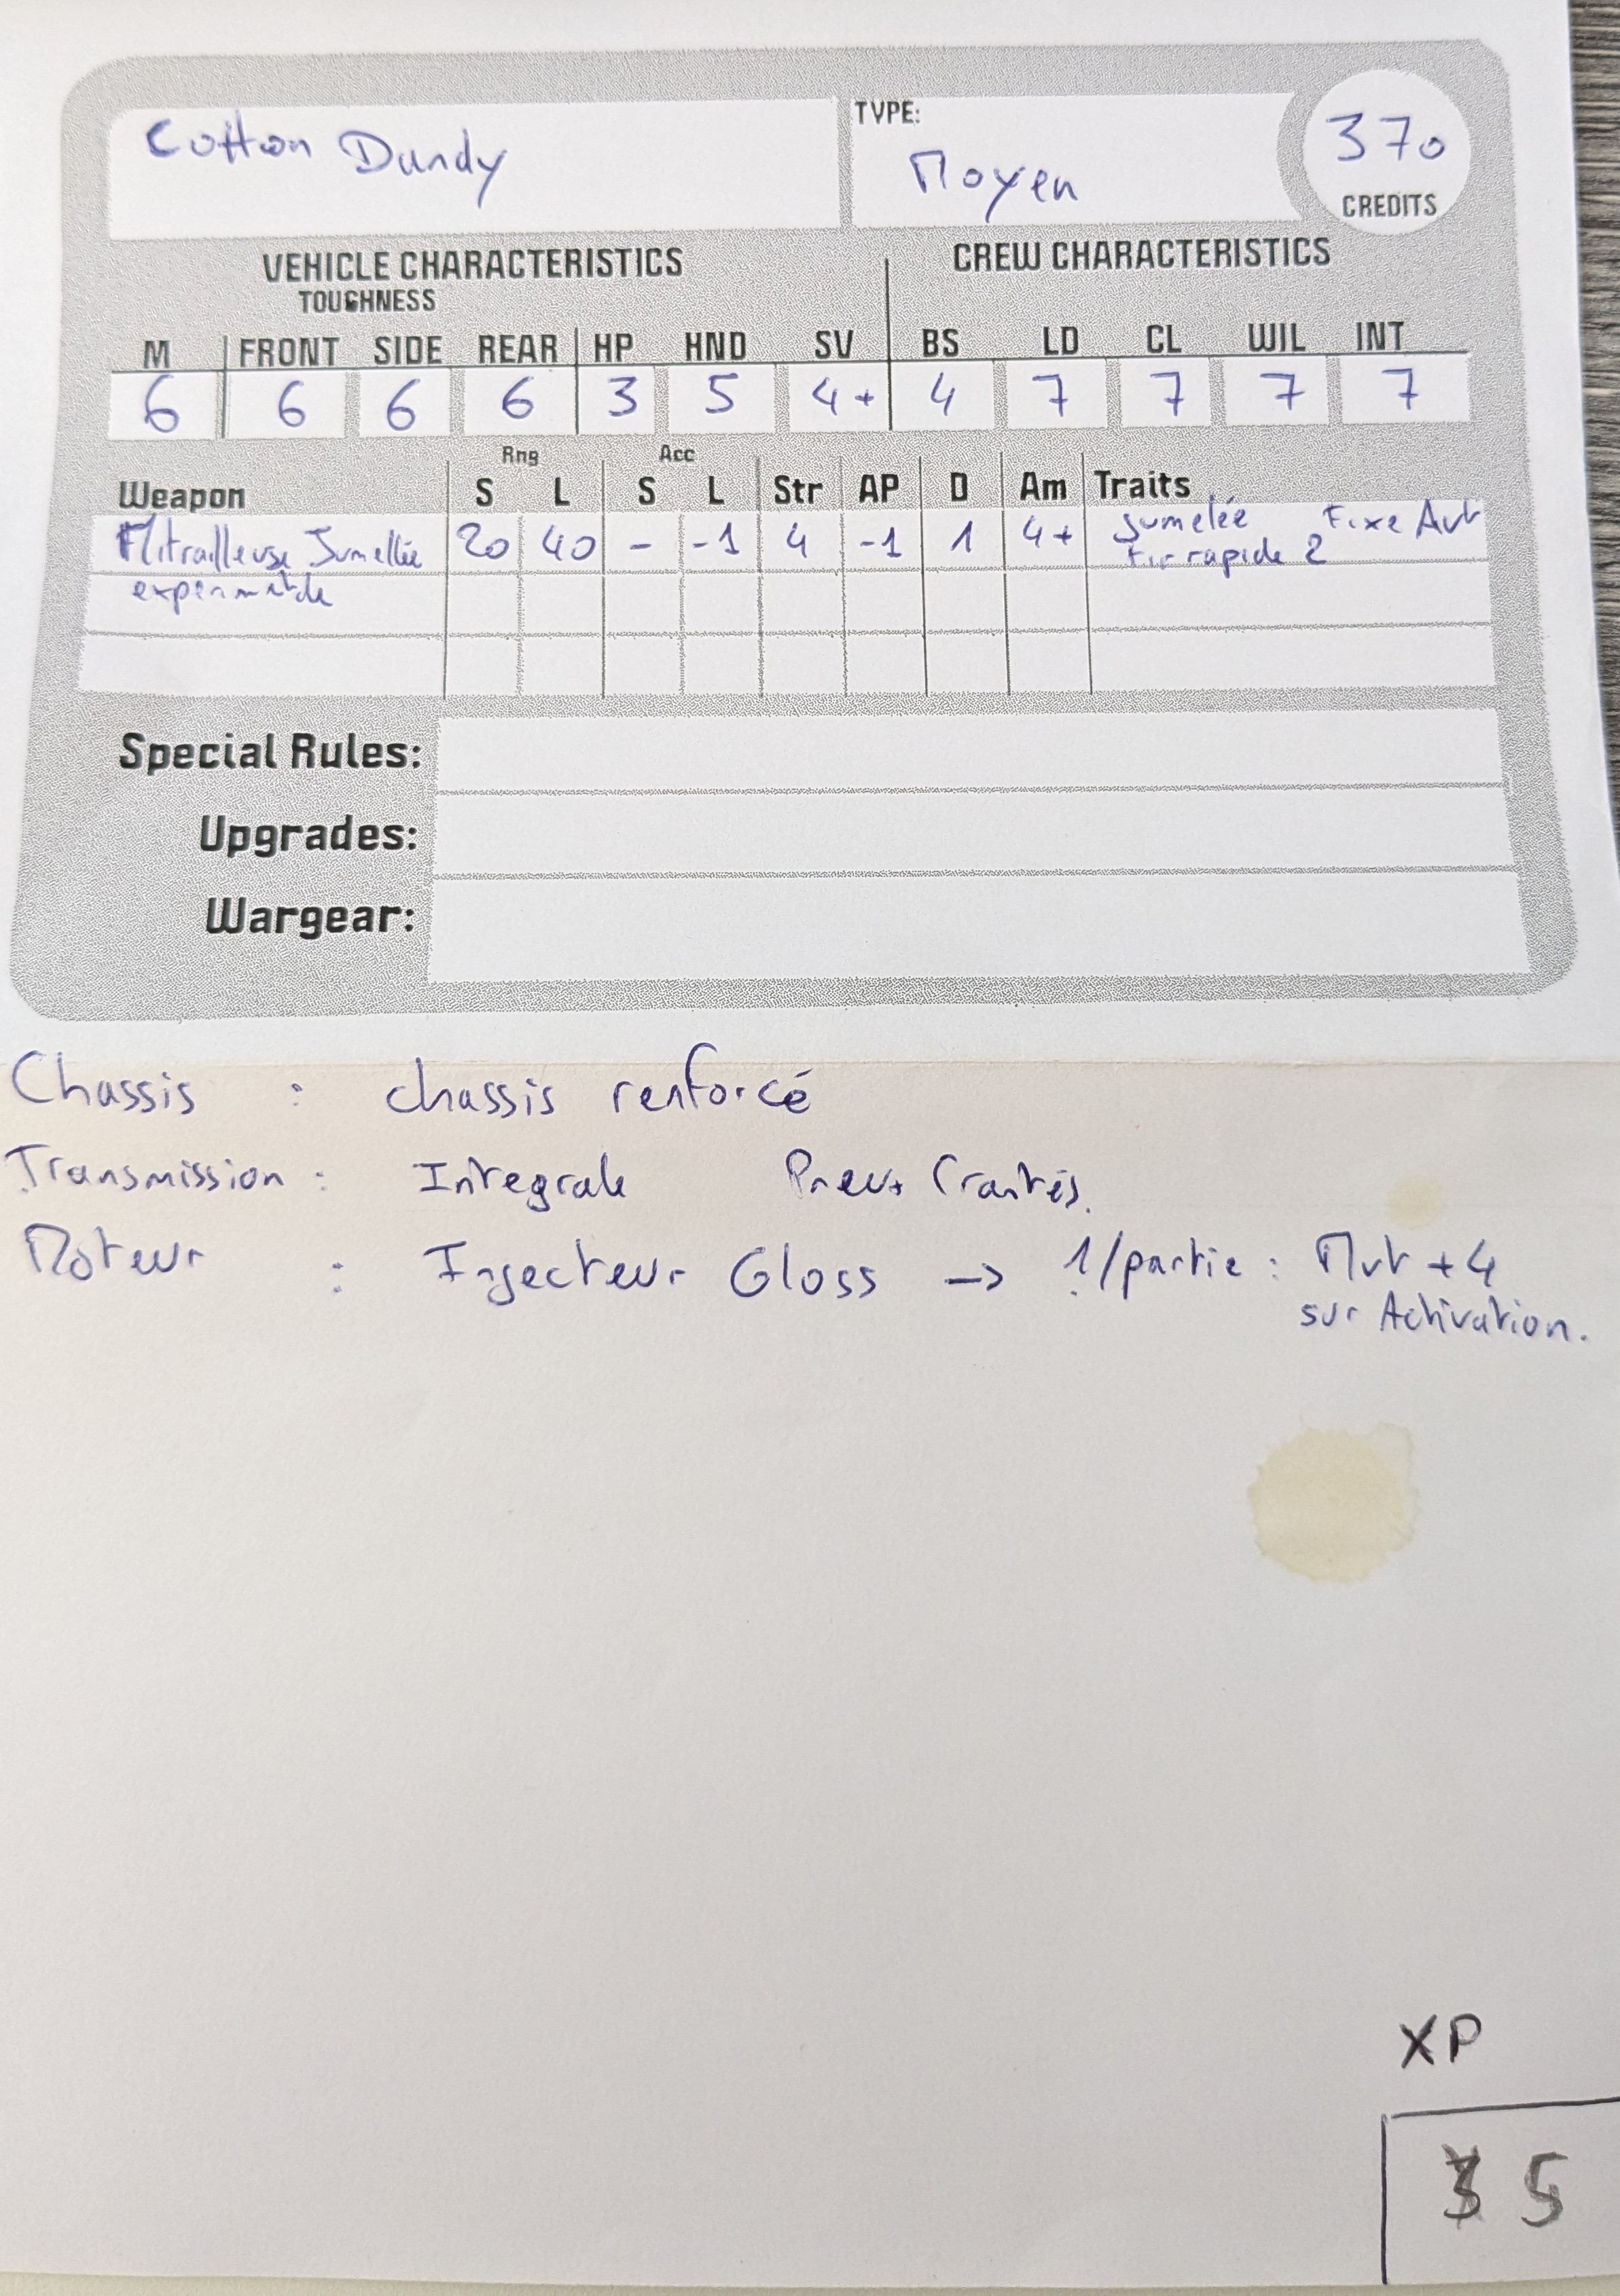 Cotton Dandy
TYPE:
Moyen
370
CREDITS
VEHICLE CHARACTERISTICS
CREW CHARACTERISTICS
TOUGHNESS
M FRONT SIDE REAR HP HND SV BS LD CL WIL INT
6 6 6 6 3 5 4+ 4 7 7 7 7
Rng Acc
Weapon S L S L Str AP D Am Traits
Mitrailleuse Jumellée 20 40 - -1 4 -1 1 4+ Jumelée Fixe Avt
Tir rapide 2
expérimentale
Special Rules:
Upgrades:
Wargear:
Chassis : chassis renforcé
Transmission : Integrale Pneus Crantés.
Moteur : Injecteur Gloss -> 1/partie : Mvt +4
sur Activation.
XP
5